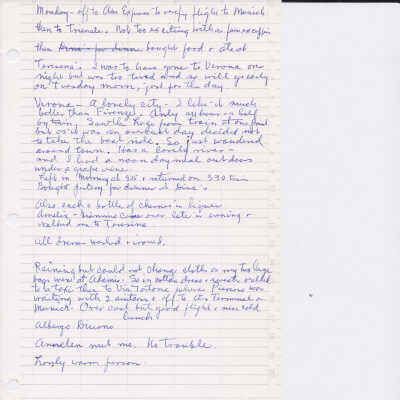 Monday - off to Am Express to verify flight to Munich
then to Trieste. Not too exciting with a few errands
then bought food & ate at
Teresina's. I was to have gone to Verona one
night but was too tired and so will go early
on Tuesday morn, just for the day.
Verona - A lovely city - I like it much
better than Firenze. Only an hour & a half
by train. Saw the Lago from train at one point
but as it was an overcast day decided not
to take the boat ride. So just wandered
around town. Has a lovely river -
and I had a noon day meal outdoors
under a grape vine.
Left in Morning at 9:25 & returned on 5:30 train
Bought pastry for dinner at Dina's.
Also each a bottle of cherries in liquor
Amelia - came over late in evening &
walked me to Teresina
All dresses washed &
Raining but could not change cloth as my two large
bags were at So in cotton dress & walked
to a taxi then to Via Tortona where was
waiting with 2 suitcases & off to Air Terminal &
Munich. Over cast but good flight & nice cold
lunch
Albergo
met me. No trouble.
Lovely warm person.